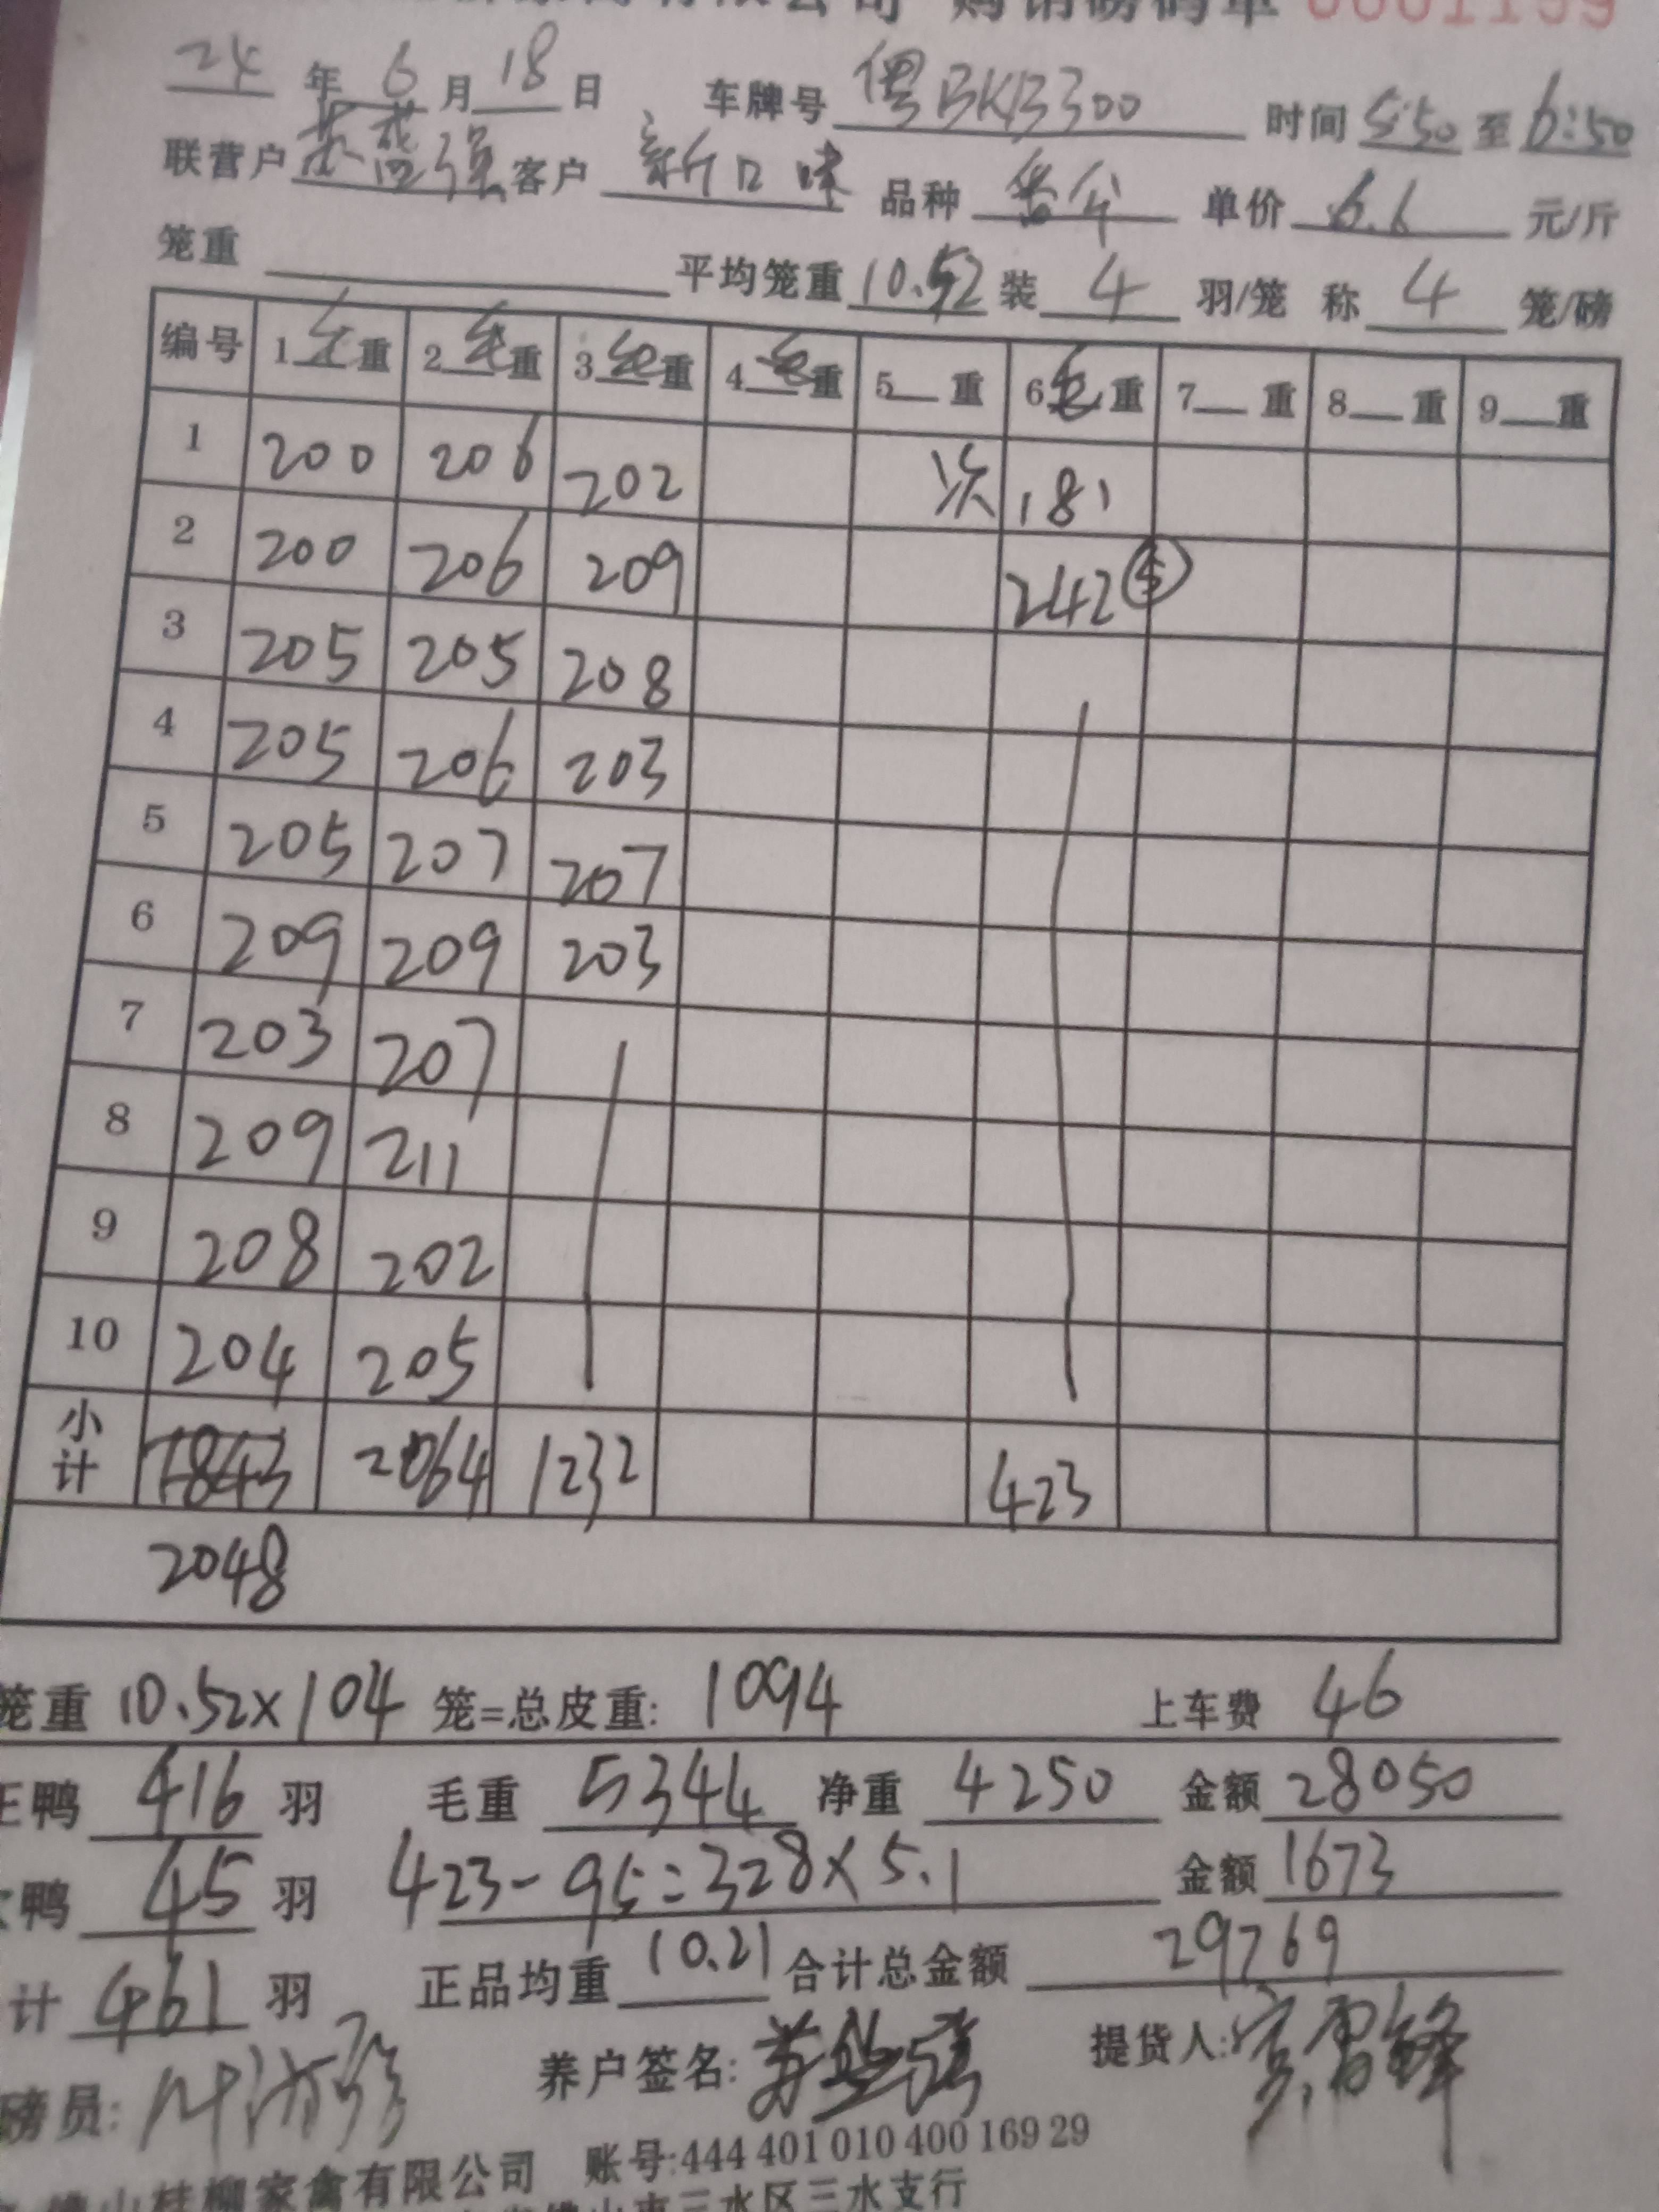 有限公司 购销磅码单 0001199
24年6月18日 车牌号 粤BKB3300 时间 5:50 至 6:50
联营户 客户 新口味 品种 单价 6.6 元/斤
笼重 平均笼重 10.52 装 4 羽/笼 称 4 笼/磅
编号 1毛重 2毛重 3毛重 4毛重 5重 6毛重 7重 8重 9重
1 200 206 202 次 181
2 200 206 209 242 ⑤
3 205 205 208
4 205 206 203
5 205 207 207
6 209 209 203
7 203 207
8 209 211
9 208 202
10 204 205
小计 1843 2064 1232 423
2048
笼重 10.52×104 笼=总皮重: 1094 上车费 46
正鸭 416 羽 毛重 5344 净重 4250 金额 28050
鸭 45 羽 423-95=328×5.1 金额 1673
计 461 羽 正品均重 10.21 合计总金额 29769
磅员: 养户签名: 提货人:
佛山桂柳家禽有限公司 账号:444 401 010 400 169 29
佛山市三水区三水支行